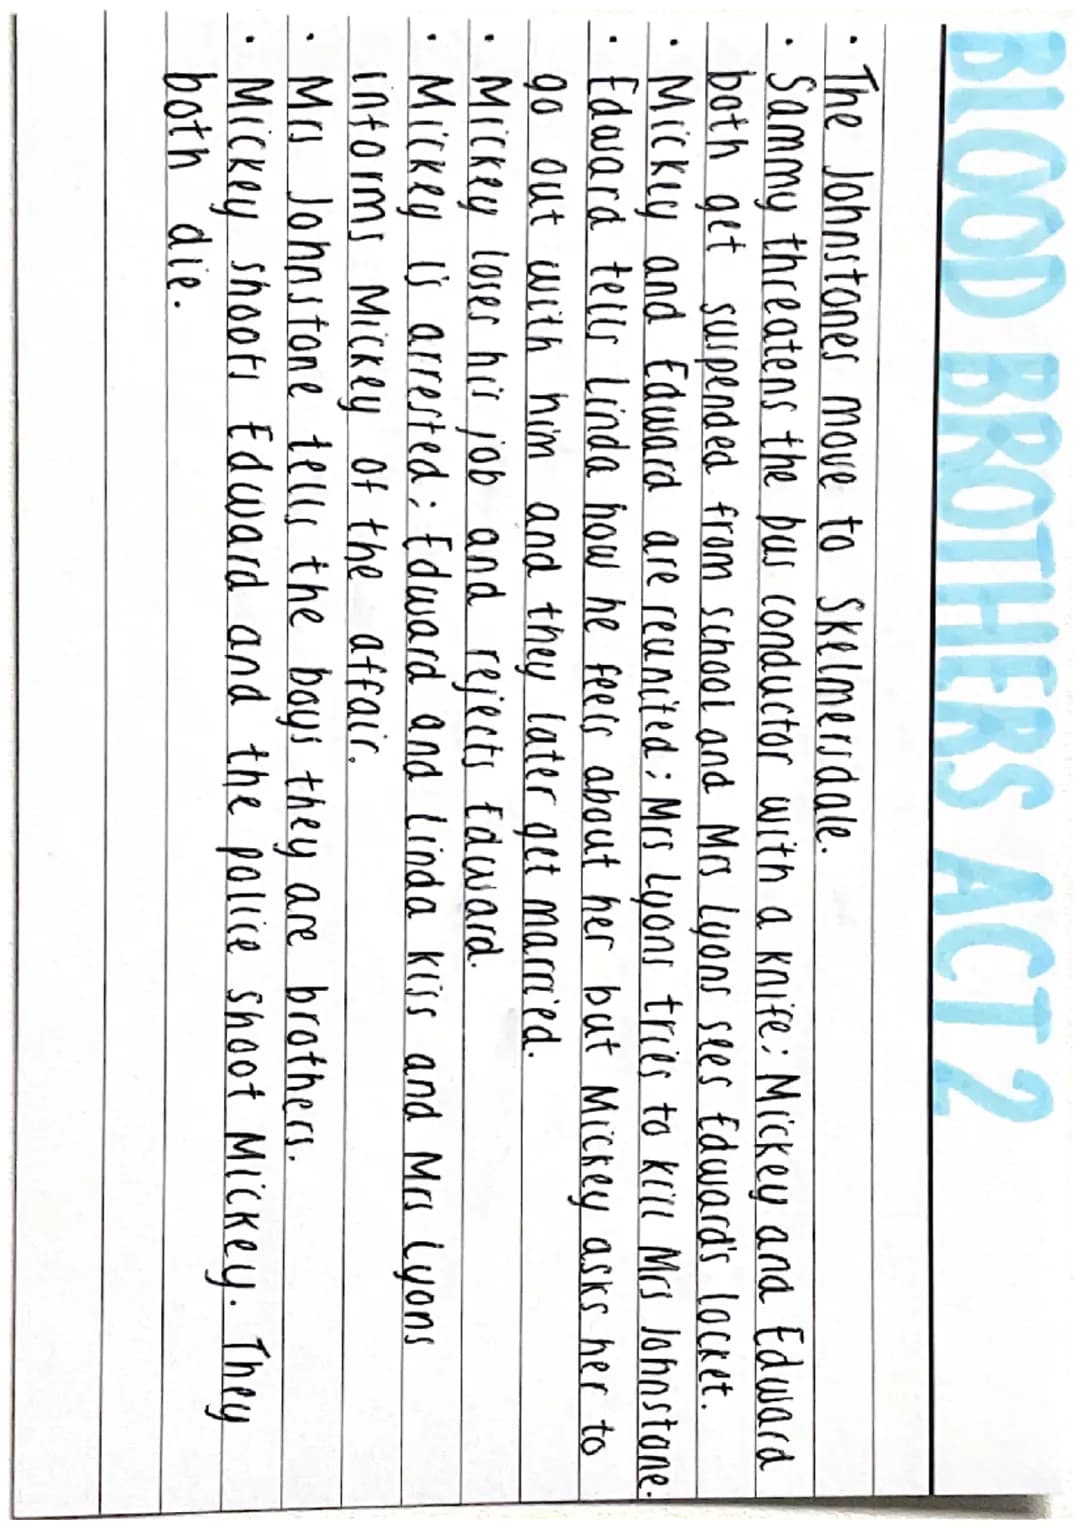 BLOOD BROTHERS ACT 2
• The Johnstones move to Skelmersdale.
• Sammy threatens the bus conductor with a knife; Mickey and Edward
both get suspended from school and Mrs Lyons sees Edward's locket.
• Mickey and Edward are reunited; Mrs Lyons tries to kill Mrs Johnstone.
• Edward tells Linda how he feels about her but Mickey asks her to
go out with him and they later get married.
• Mickey loses his job and rejects Edward.
• Mickey is arrested; Edward and Linda kiss and Mrs Lyons
informs Mickey of the affair.
• Mrs Johnstone tells the boys they are brothers.
• Mickey shoots Edward and the police shoot Mickey. They
both die.